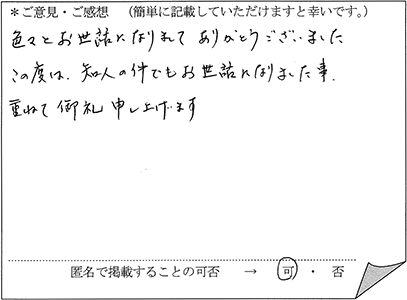 *ご意見・ご感想 (簡単に記載していただけますと幸いです。)
色々とお世話になりまして ありがとうございました
この度は、知人の件でもお世話になりました事、
重ねて御礼申し上げます
匿名で掲載することの可否 → 可 ・ 否